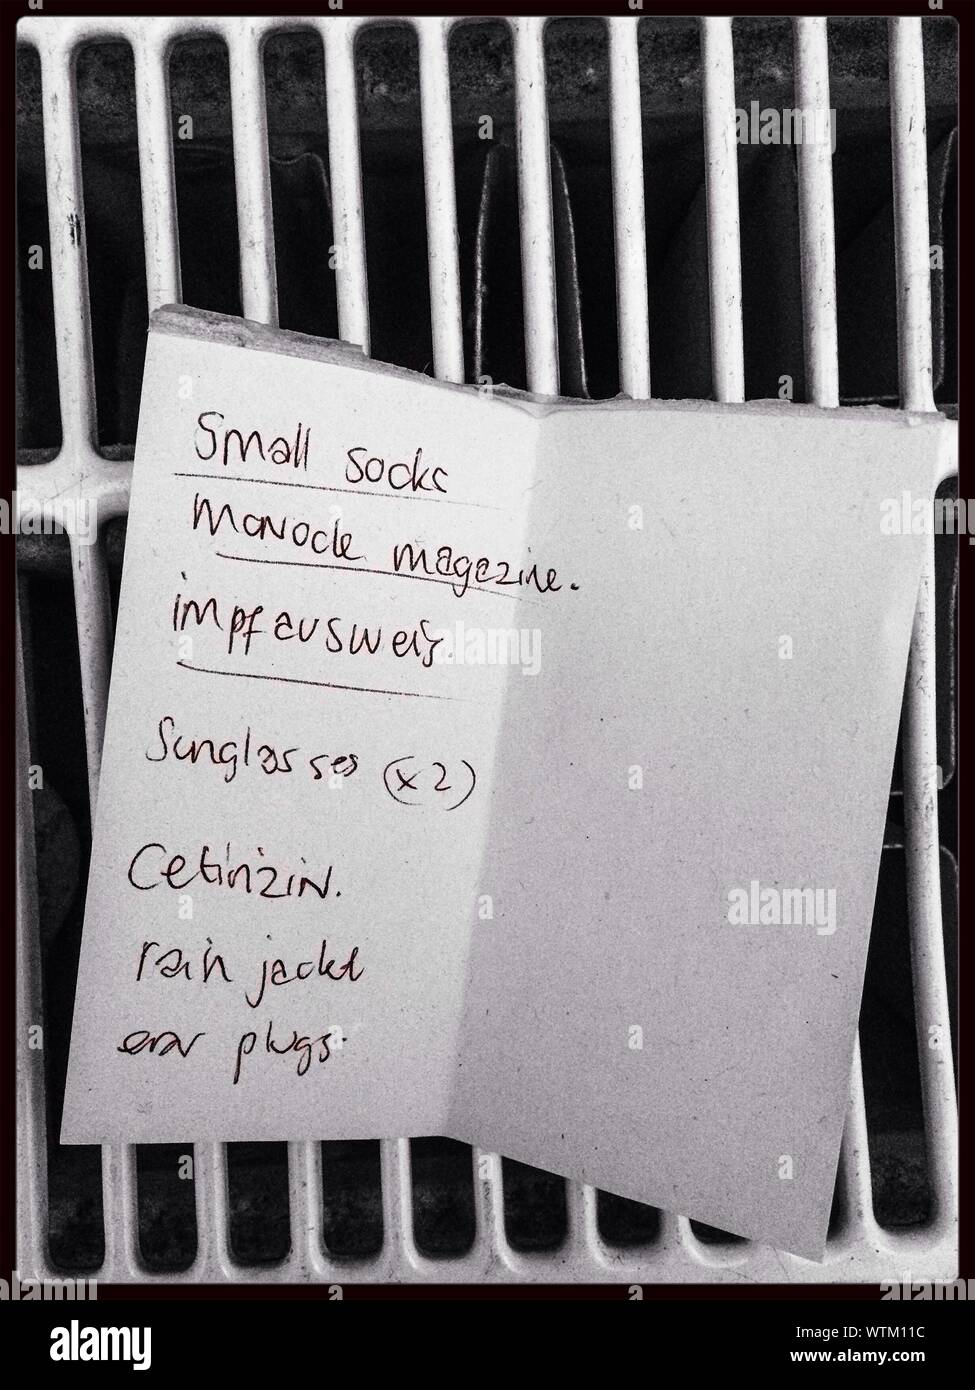 Small socks
Monocle magazine.
impfausweis.
Sunglasses (x2)
Cetirizin.
rain jacket
ear plugs.
alamy
alamy
a
alamy
Image ID: WTM11C
www.alamy.com